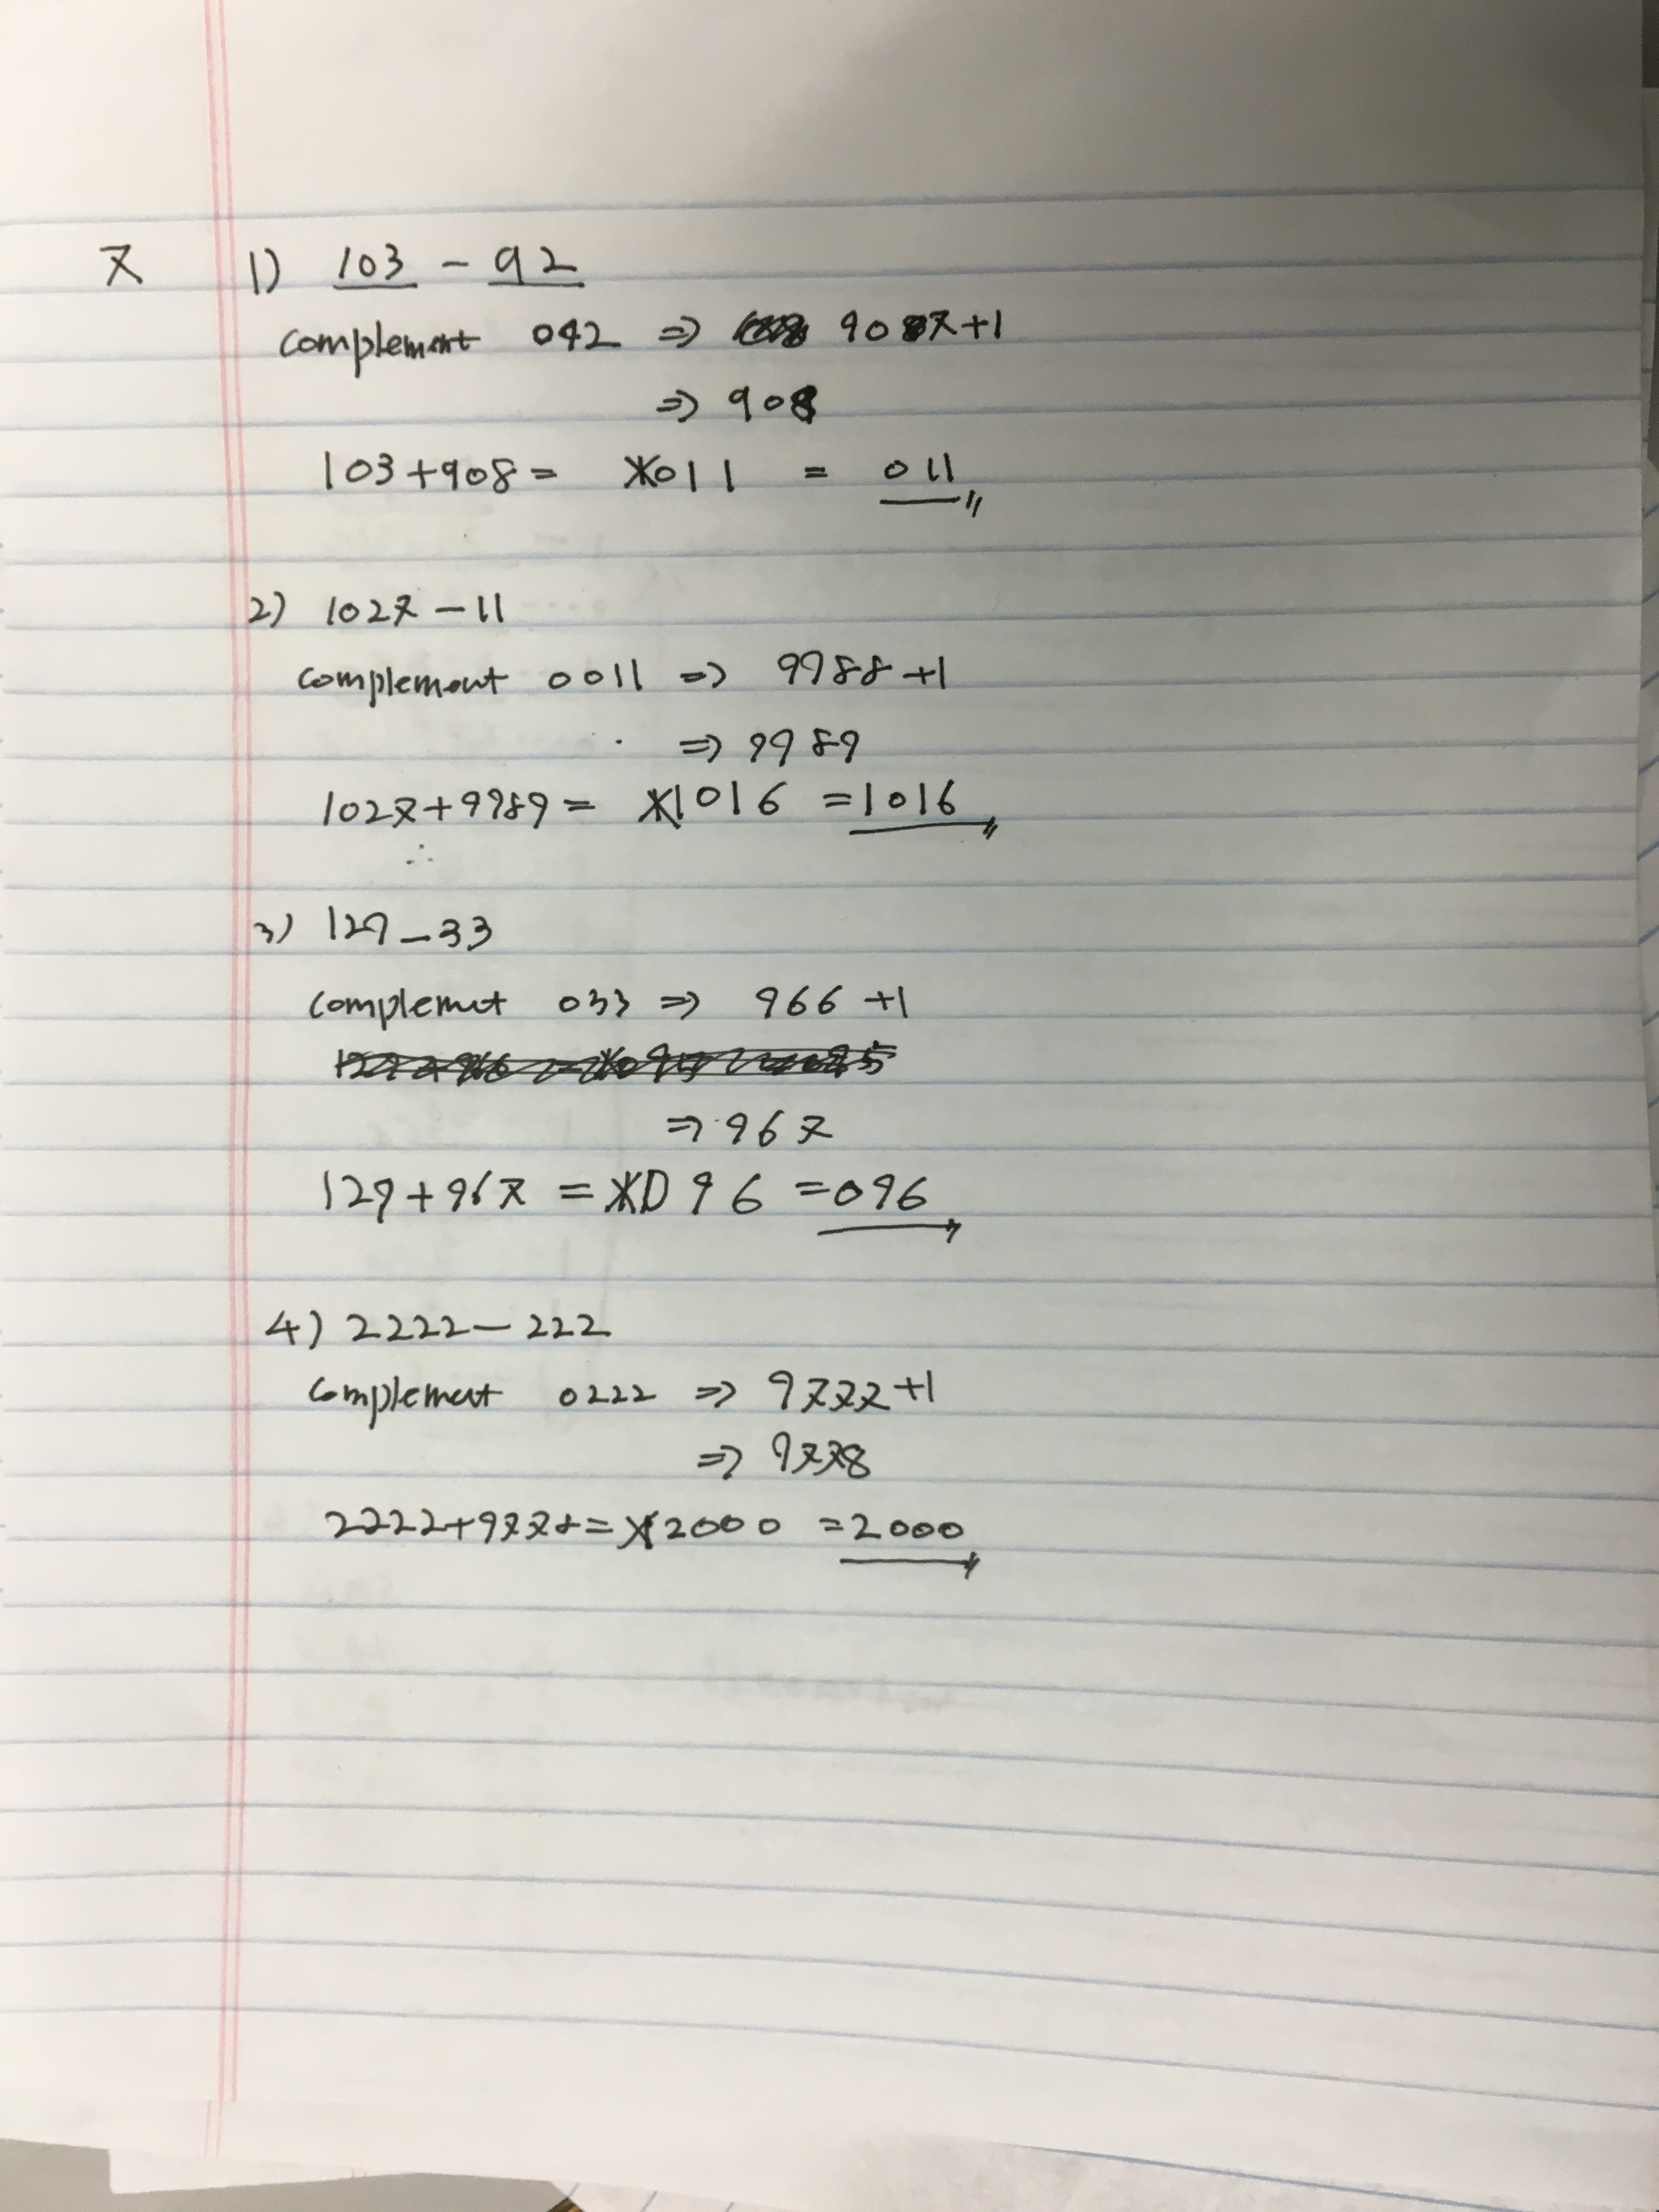 7 1) 103 - 92
complement 092 ⇒ 907+1
⇒ 908
103+908= 1011 = 011
2) 1027-11
complement 0011 ⇒ 9988+1
⇒ 9989
1027+9989= 11016 =1016
3) 129-33
complemet 033 ⇒ 966+1
⇒ 967
129+967 = 1096 =096
4) 2222-222
complement 0222 ⇒ 9777+1
⇒ 9778
2222+9778= 12000 =2000